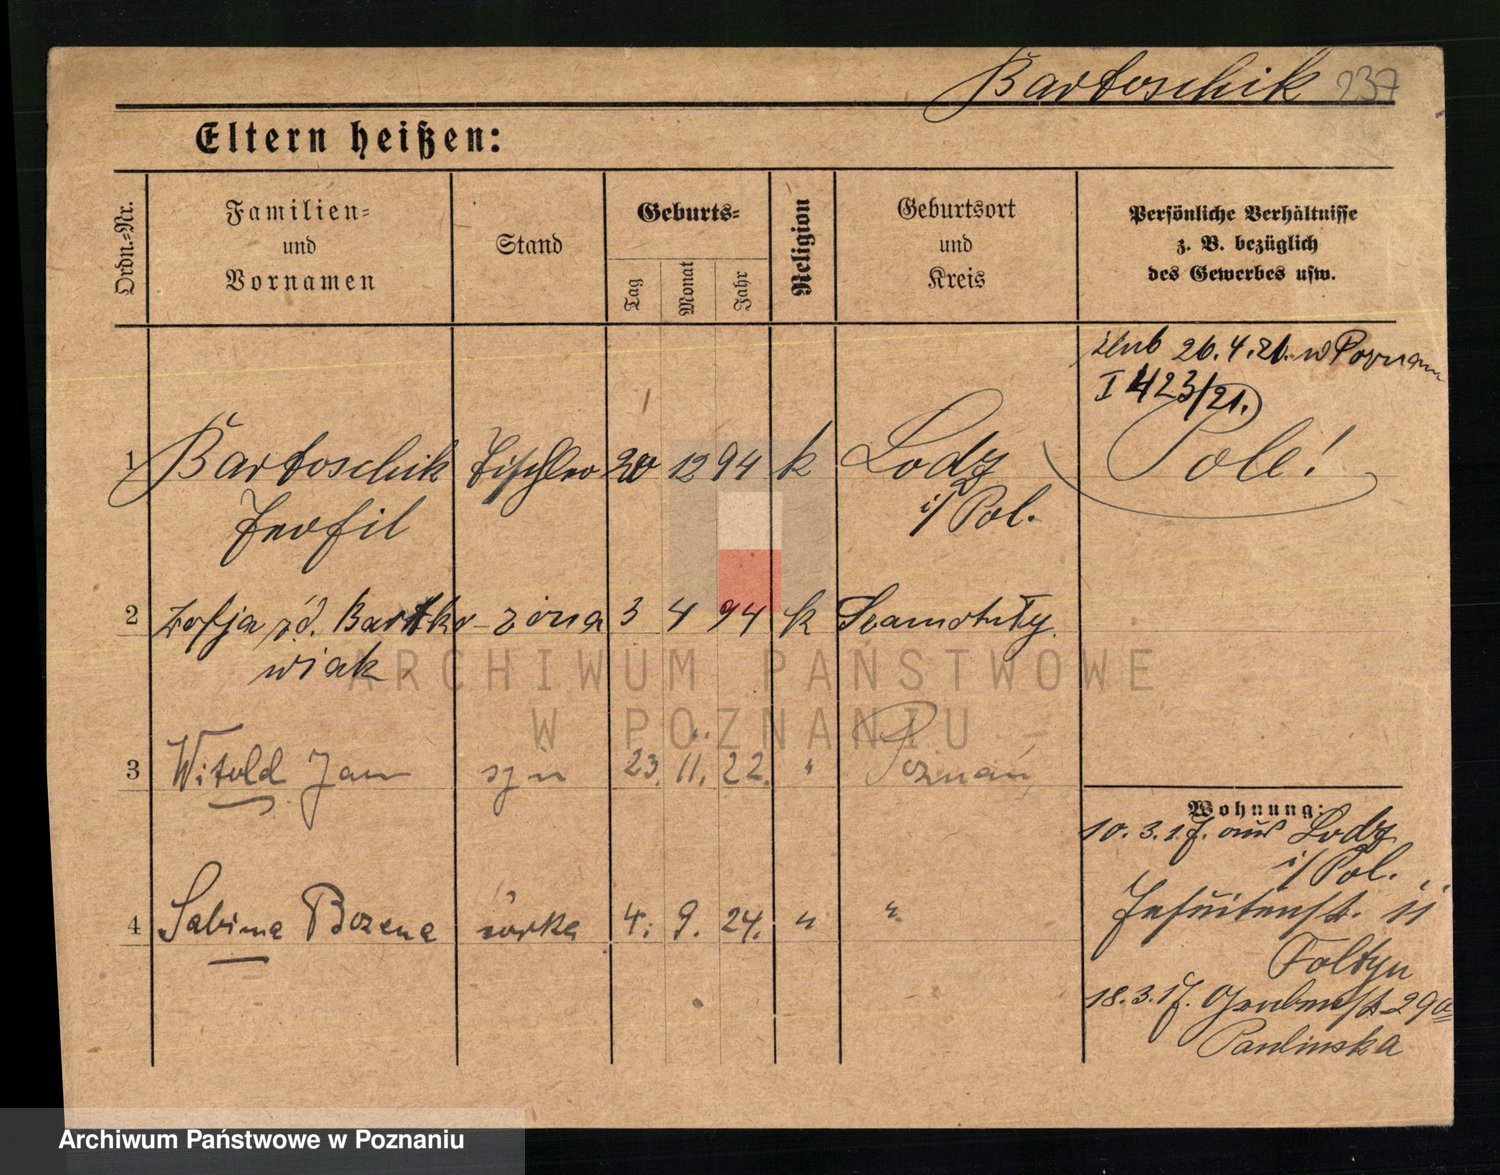 Bartoschik 237
Eltern heißen:
Ordn.-Nr.
Familien-
und
Vornamen
Stand
Geburts-
Tag
Monat
Jahr
Religion
Geburtsort
und
Kreis
Persönliche Verhältnisse
z. B. bezüglich
des Gewerbes usw.
ślub 26.4.21. w Poznaniu
I 423/21.
1 Bartoschik Tischler 20 12 94 k Lodz Pole!
Teofil i/Pol.
2 Zofja zd. Bartko- żona 3 4 94 k Szamotuły
wiak
3 Witold Jan syn 23. 11. 22. " Poznań
4 Sabina Bozena córka 4. 9. 24. " "
Wohnung:
10.3.17. aus Lodz
i/Pol.
Jesuitenst. 11
Foltyn
18.3.17. Grabenst 29a
Paulinska
ARCHIWUM PAŃSTWOWE
W POZNANIU
Archiwum Państwowe w Poznaniu